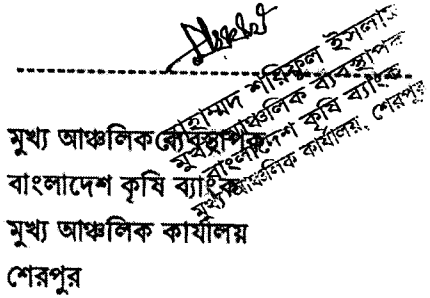 মোহাম্মদ শরিফুল ইসলাম
মুখ্য আঞ্চলিক ব্যবস্থাপক
বাংলাদেশ কৃষি ব্যাংক
মুখ্য আঞ্চলিক কার্যালয়, শেরপুর
মুখ্য আঞ্চলিক ব্যবস্থাপক
বাংলাদেশ কৃষি ব্যাংক
মুখ্য আঞ্চলিক কার্যালয়
শেরপুর